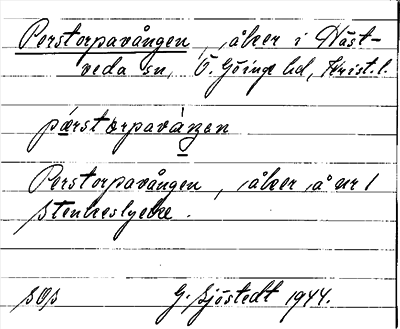 Perstorpavången, åker i Häst-
veda sn, Ö. Göinge hd, Krist. l.
pærstorpaváŋen
Perstorpavången, åker å nr 1
Stenkeslycke.
sOs G. Sjöstedt 1944.